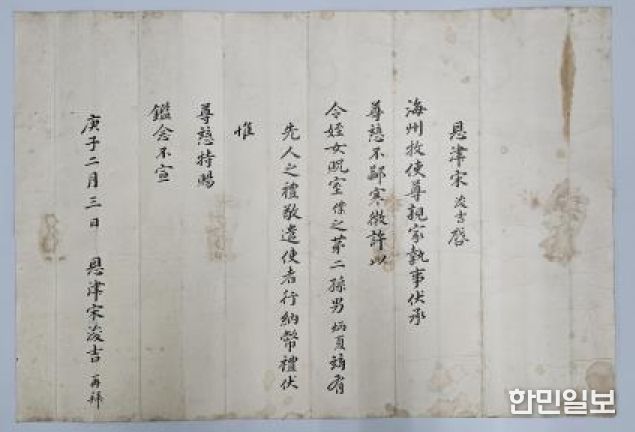 恩津宋浚吉啓
海州牧使尊親家執事伏承
尊慈不鄙寒微許以
令姪女貺室僕之第二孫男炳夏玆有
先人之禮敬遣使者行納幣禮伏
惟
尊慈特賜
鑑念不宣
庚子二月三日 恩津宋浚吉 再拜
한민일보